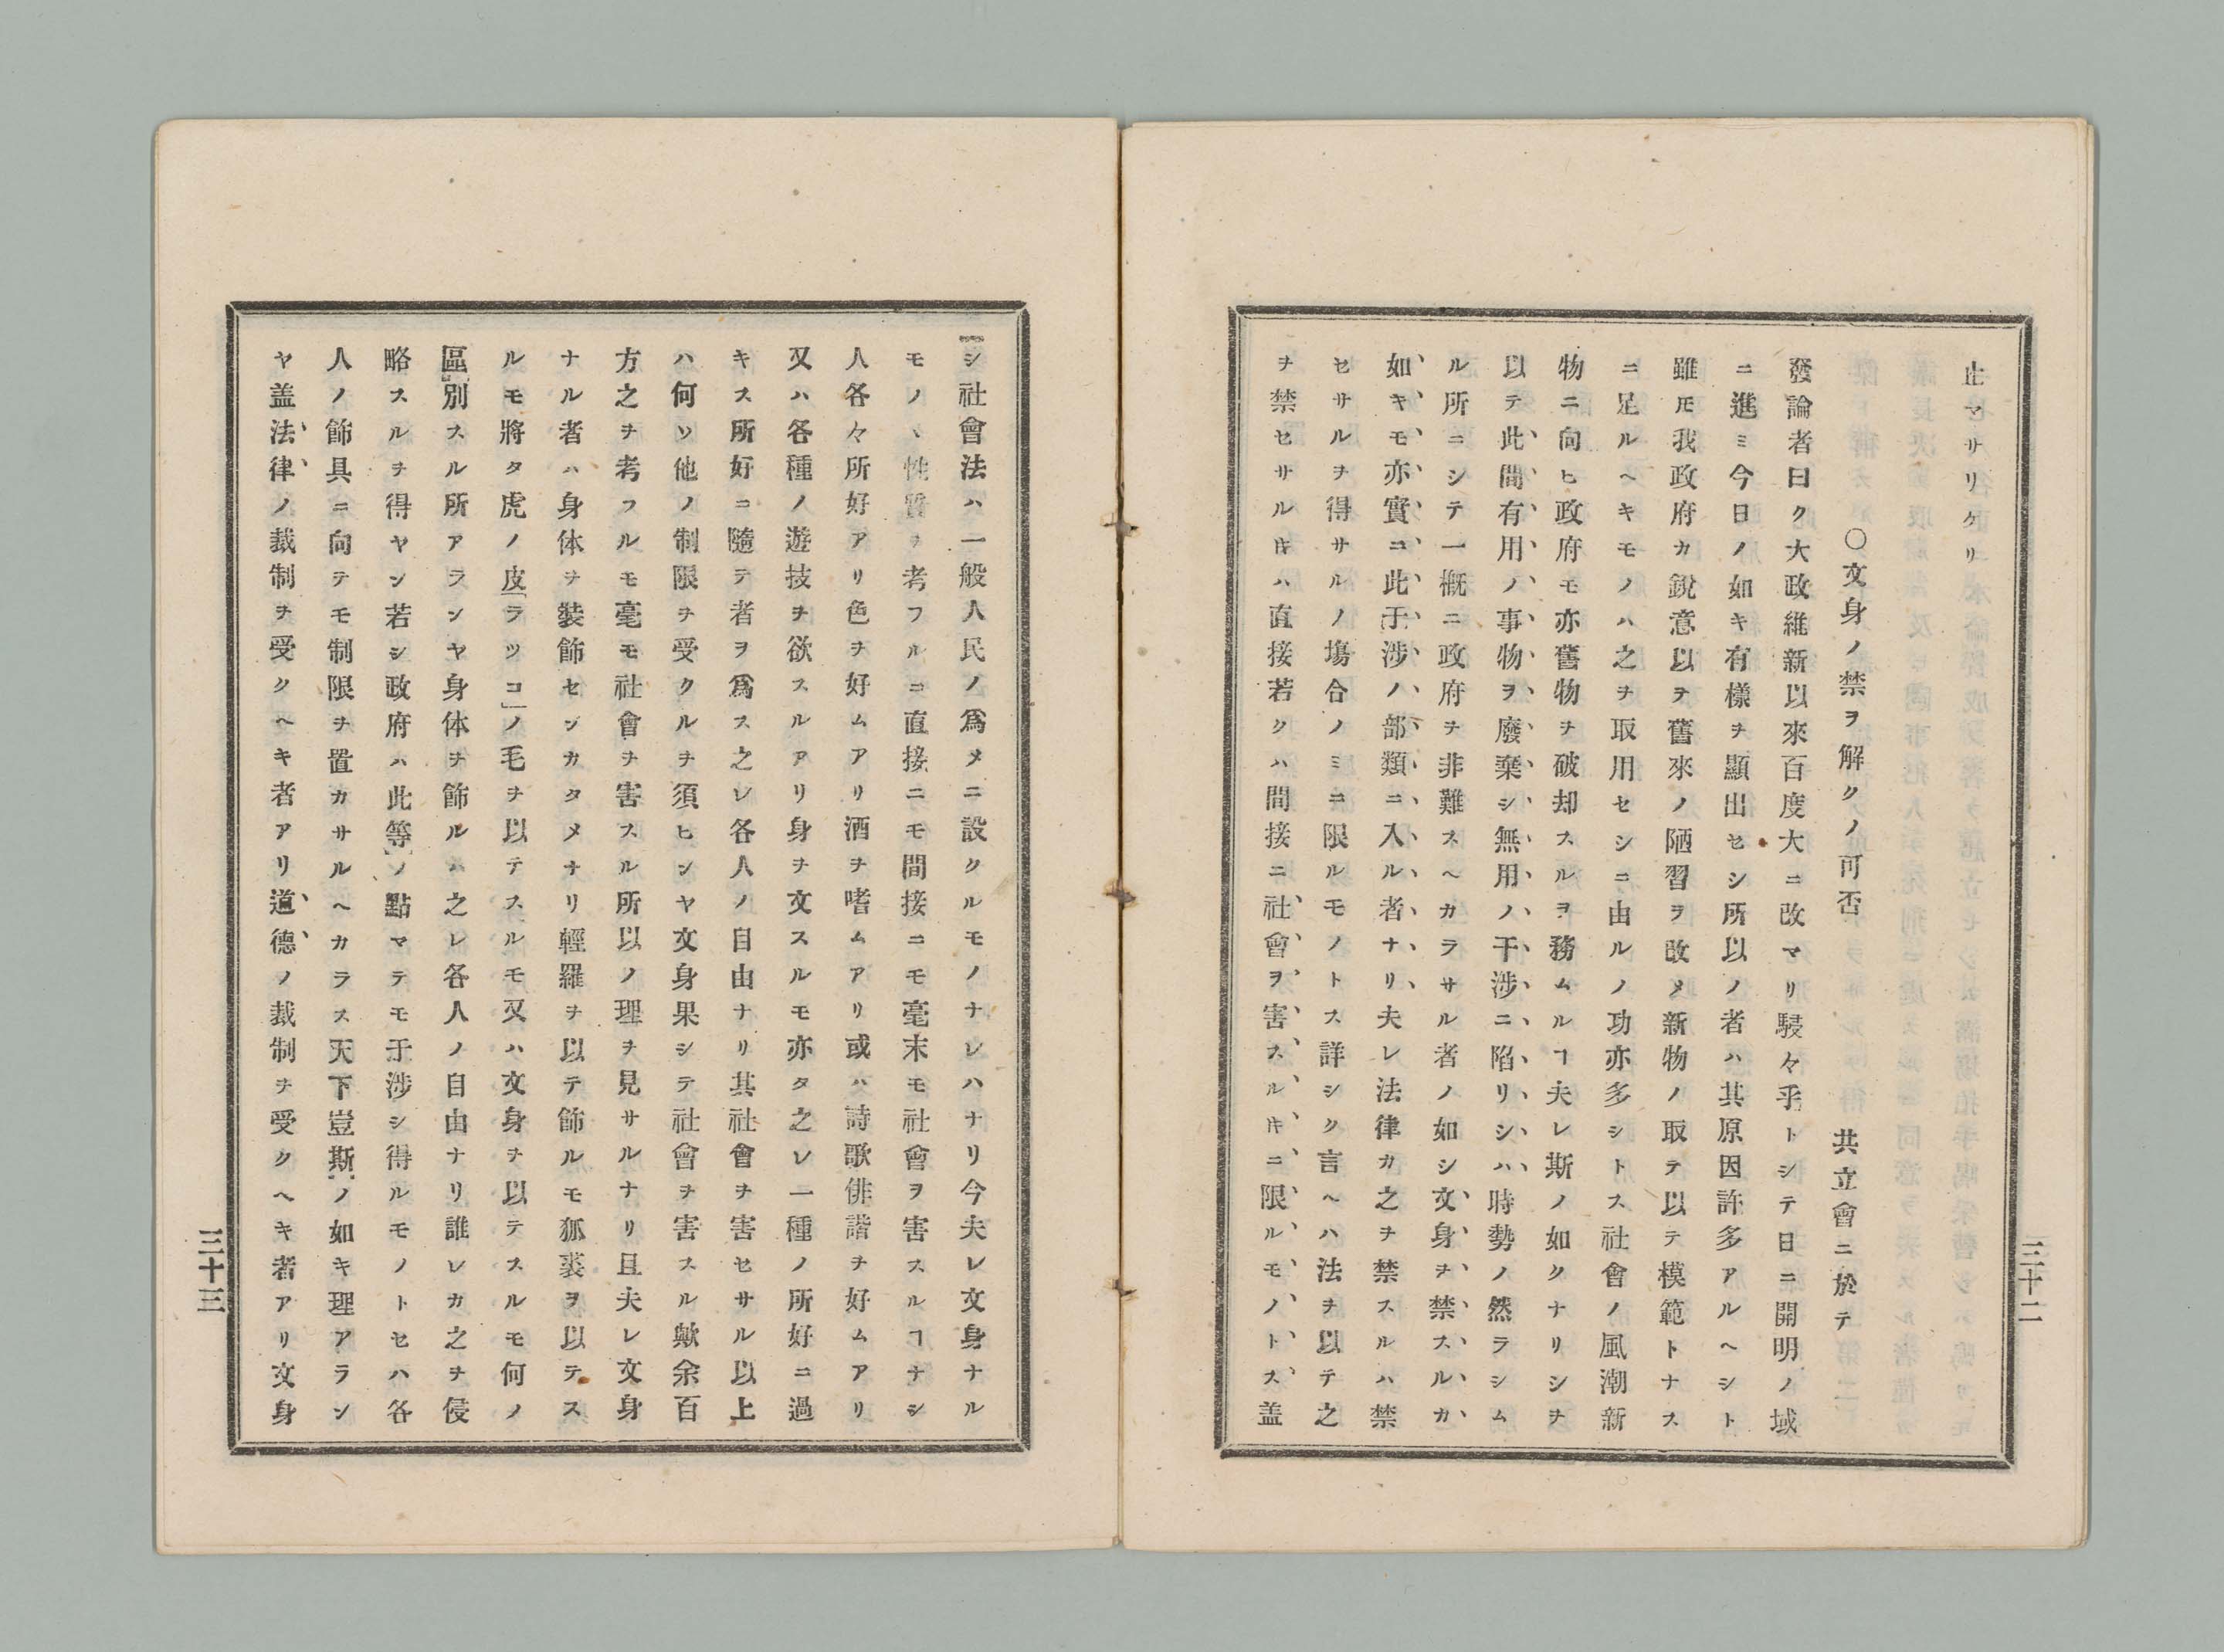 止マサリケリ
〇文身ノ禁ヲ解クノ可否　共立會ニ於テ
發論者曰ク大政維新以來百度大ニ改マリ駸々乎トシテ日ニ開明ノ域
ニ進ミ今日ノ如キ有樣ヲ顯出セシ所以ノ者ハ其原因許多アルヘシト
雖𪜈我政府カ銳意以テ舊來ノ陋習ヲ改メ新物ノ取テ以テ模範トナス
ニ足ルヘキモノハ之ヲ取用セシニ由ルノ功亦多シトス社會ノ風潮新
物ニ向ヒ政府モ亦舊物ヲ破却スルヲ務ムルヿ夫レ斯ノ如クナリシヲ
以テ此間有用ノ事物ヲ廢棄シ無用ノ干涉ニ陷リシハ時勢ノ然ラシム
ル所ニシテ一概ニ政府ヲ非難スヘカラサル者ノ如シ文身ヲ禁スルカ
如キモ亦實ニ此干涉ノ部類ニ入ル者ナリ夫レ法律カ之ヲ禁スルハ禁
セサルヲ得サルノ塲合ノミニ限ルモノトス詳シク言ヘハ法ヲ以テ之
ヲ禁セサル𪜈ハ直接若クハ間接ニ社會ヲ害スル𪜈ニ限ルモノトス盖
三十二
シ社會法ハ一般人民ノ爲メニ設クルモノナレハナリ今夫レ文身ナル
モノヽ性質ヲ考フルニ直接ニモ間接ニモ毫末モ社會ヲ害スルヿナシ
人各々所好アリ色ヲ好ムアリ酒ヲ嗜ムアリ或ハ詩歌俳諧ヲ好ムアリ
又ハ各種ノ遊技ヲ欲スルアリ身ヲ文スルモ亦タ之レ一種ノ所好ニ過
キス所好ニ隨テ者ヲ爲ス之レ各人ノ自由ナリ其社會ヲ害セサル以上
ハ何ソ他ノ制限ヲ受クルヲ須ヒンヤ文身果シテ社會ヲ害スル歟余百
方之ヲ考フルモ毫モ社會ヲ害スル所以ノ理ヲ見サルナリ且夫レ文身
ナル者ハ身体ヲ裝飾センカタメナリ輕羅ヲ以テ飾ルモ狐裘ヲ以テス
ルモ將タ虎ノ皮「ラツコ」ノ毛ヲ以テスルモ又ハ文身ヲ以テスルモ何ノ
區別スル所アランヤ身体ヲ飾ルハ之レ各人ノ自由ナリ誰レカ之ヲ侵
略スルヲ得ヤン若シ政府ハ此等ノ點マテモ干涉シ得ルモノトセハ各
人ノ飾具ニ向テモ制限ヲ置カサルヘカラス天下豈斯ノ如キ理アラン
ヤ盖法律ノ裁制ヲ受クヘキ者アリ道德ノ裁制ヲ受クヘキ者アリ文身
三十三